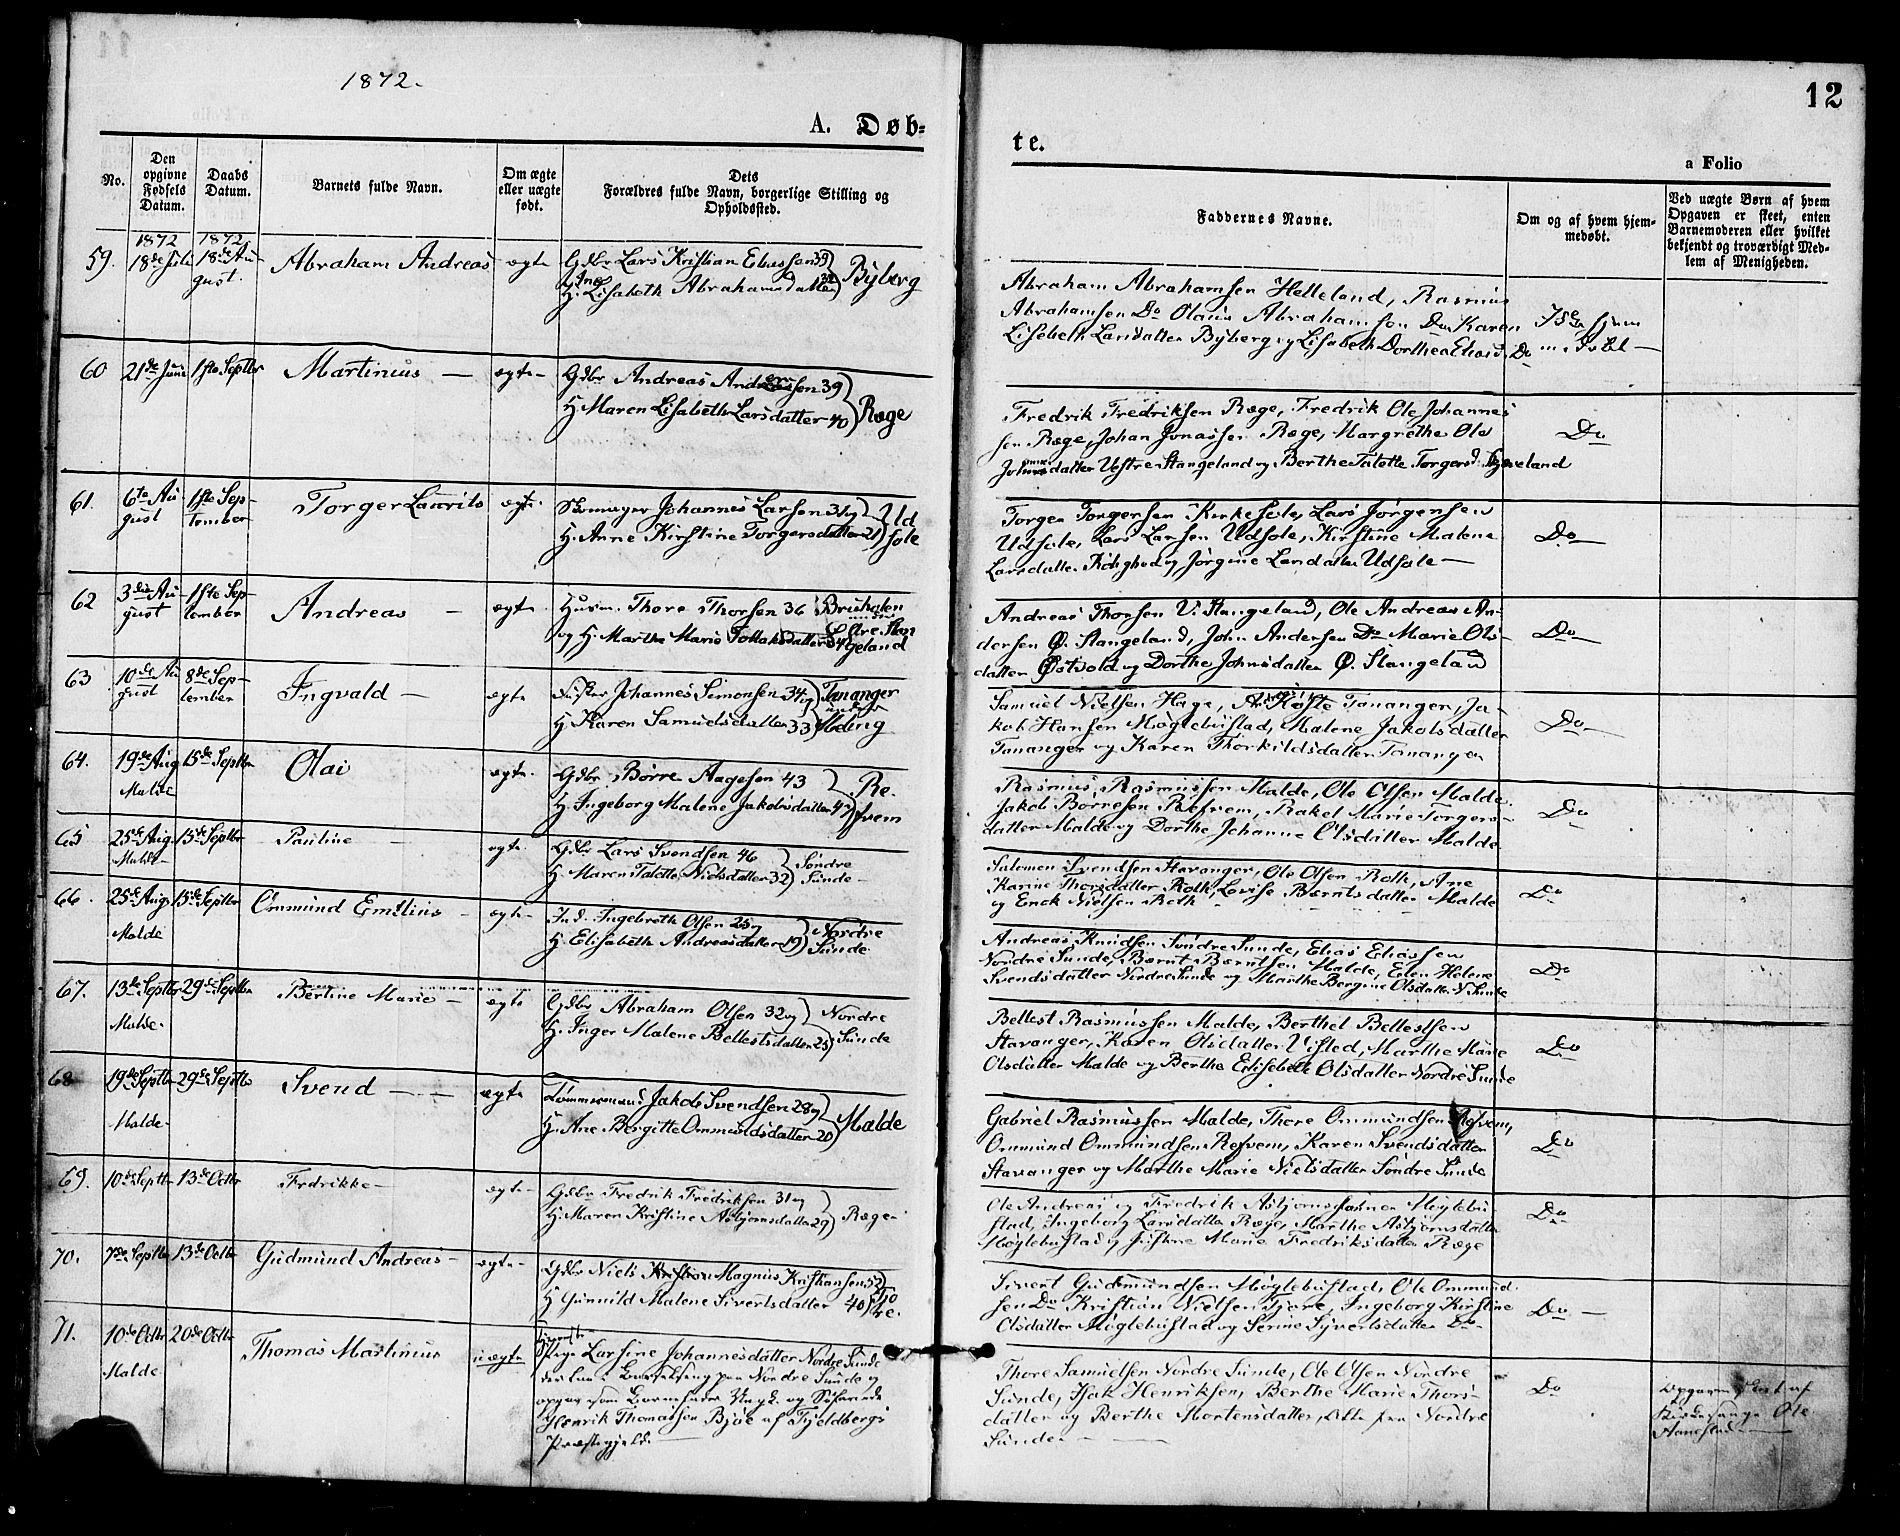 1872.
A. Døb=
No.
Den opgivne Fødsels Datum.
Daabs Datum.
Barnets fulde Navn.
Om ægte eller uægte født.
Dets
Forældres fulde Navn, borgerlige Stilling og
Opholdssted.
59.
1872
18de Juli
1872
18de Au-
gust.
Abraham Andreas
ægte
Gdbr Lars Kristian Eliassen 39
H. Lisabeth Abrahamsdatter
Byberg
60
21de Juni
1ste Septbr
Martinius —
ægte –
Gdbr Andreas Andersen 39
H. Maren Lisabeth Larsdatter 40
Ræge
61.
6te Au-
gust
1ste Sep-
tember
Torger Laurits
ægte.
Johannes Larsen 31 og
H. Anne Kirstine Torgersdatter 21
Ud
sole
62
3die Au-
gust
1ste Sep-
tember
Andreas —
ægte.
Husm. Thore Thorsen 36
og H. Marthe Marie
Bruholen
under
Østre Stan
geland
63
10de Au
gust
8de Sep-
tember
Ingvald —
ægte
Johannes Simonsen 34 og
H. Karen Samuelsdatter 33
Tananger
under
Meling
64.
19de Aug
Malde
15de Septbr
Olai
ægte.
Gdbr Børre Aagesen 43
H. Ingeborg Malene Jakobsdatter 42
Re-
fvem
65
25de Aug.
Malde –
15de Septbr
Pauline —
ægte
Gdbr Lars Svendsen 46
H. Maren Talette Nielsdatter 32
Søndre
Sunde –
66.
25de Aug
Malde
15de Septbr
Ommund Emilius –
ægte –
Ind. Ingebreth Olsen 25 og
H. Elisabeth Andreasdatter 19
Nordre
Sunde
67.
13de Septbr
Malde.
29de Septbr
Bertine Marie –
ægte
Gdbr Abraham Olsen 32 og
H. Inger Malene Bellestsdatter 25
Nordre
Sunde
68
19de Septbr
Malde.
29de Septbr
Svend — —
ægte
Tømmermand Jakob Svendsen 28 og
H. Ane Bergitte Ommundsdatter 20
Malde
69.
10de Septbr
13de Octbr
Fredrikke –
ægte –
Gdbr Fredrik Fredriksen 31 og
H. Maren Kristine Asbjørnsdatter 29
Ræge –
70.
7de Septbr
13de Octbr
Gudmund Andreas –
ægte –
Gdbr Niels Magnus Kristiansen 52
H Gunnild Malene Sivertsdatter 40
Tjo
re.
71.
10de Octbr
Malde
20de Octbr
Thomas Martinius
uægte
Pige Larsine Johannesdatter Nordre Sunde
paa Nordre Sunde og
som Barnefader Ungk. og Søfarende
Henrik Thomassen Bjøe af Fjeldbergs
Præstegjeld. —
12
te.
a Folio
Faddernes Navne.
Om og af hvem hjem-
medøbt.
Ved uægte Børn af hvem
Opgaven er skeet, enten
Barnemoderen eller hvilket
bekjendt og troværdigt Med-
lem af Menigheden.
Abraham Abrahamsen Helleland, Rasmus
Abrahamsen Do Olaus Abrahamsen Do Karen
Lisebeth Larsdatter Byberg og Lisabeth Dorthea Eliasd. Do
Ise hjem
m. døbt —
Fredrik Fredriksen Ræge, Fredrik Ole Johannes
sen Ræge, Johan Jonassen Ræge, Margrethe Ole
datter Vestre Stangeland og Berthe Talette Torgersd.
Do
Torger Torgersen Kirkesole, Lars Jørgensen
Udsole, Lars Larsen Udsole, Kirstine Malene
Larsdatter og Jørgine Larsdatter Udsole —
Do —
Andreas Thorsen V. Stangeland, Ole Andreas An-
dersen Ø. Stangeland, John Andersen Do Marie Ols-
datter Østvold og Dorthe Johnsdatter Ø. Stangeland
Do —
Samuel Nielsen Haga, Tananger, Ja-
kob Hansen Møglebustad, Malene Jakobsdatter
Tananger og Karen Thorkildsdatter Tananger
Do —
Rasmus Rasmussen Malde, Ole Olsen Malde
Jakob Børresen Refvem, Rakel Marie Torgers-
datter Malde og Dorthe Johanne Olsdatter Malde
Do
Salomon Svendsen Stavanger, Ole Olsen Roth, Ane
Karine Thorsdatter Roth, Lovise Berntsdatter Malde
og Enok Nielsen Roth
Do
Andreas Knudsen Søndre Sunde, Elias Eliassen
Nordre Sunde, Bernt Berntsen Malde, Elen Helene
Svendsdatter Nordre Sunde og Marthe Bergine Olsdatter N. Sunde
Do
Bellest Rasmussen Malde, Berthel Bellestsen
Stavanger, Karen Olsdatter Visted, Marthe Marie
Olsdatter Malde og Berthe Elisebeth Olsdatter Nordre Sunde
Do
Gabriel Rasmussen Malde, Thore Ommundsen Refvem,
Ommund Ommundsen Refvem, Karen Svendsdatter
Stavanger og Marthe Marie Nielsdatter Søndre Sunde
Do
Ole Andreas og Fredrik Asbjørnssønner Møglebu
stad, Ingeborg Larsdatter Ræge, Marthe Asbjørnsdatter
Møglebustad og Marie Fredriksdatter Ræge
Do
Sivert Gudmundsen Møglebustad, Ole Ommund-
sen Do Kristian Nielsen Tjore, Ingeborg Kirstine
Olsdatter Møglebustad og Serine Syvertsdatter Do –
Do —
Thore Samuelsen Nordre Sunde, Ole Olsen Nordre
Sunde, Isak Henriksen, Berthe Marie Thors-
datter og Berthe Mortensdatter, alle fra Nordre
Sunde – —
Do
Opgaven skeet af
Kirkesanger Ole
Aanestad —